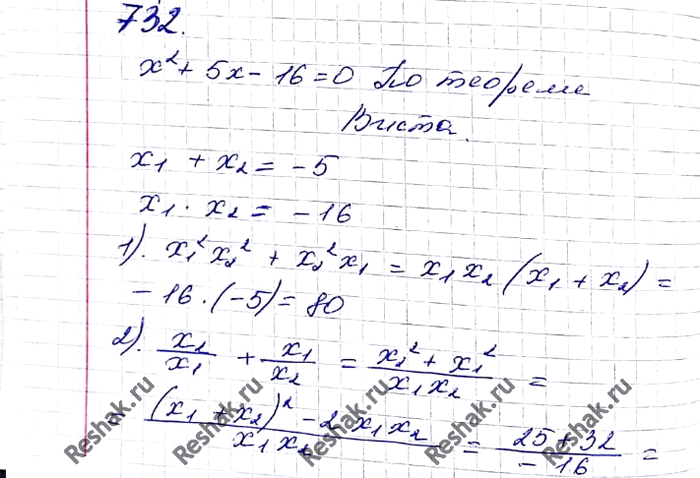 732.
x² + 5x - 16 = 0 По теореме
Виета.
x₁ + x₂ = -5
x₁ · x₂ = -16
1). x₁²x₂² + x₂²x₁ = x₁x₂(x₁ + x₂) =
-16 · (-5) = 80
2). x₂/x₁ + x₁/x₂ = (x₂² + x₁²)/(x₁x₂) =
= ((x₁ + x₂)² - 2x₁x₂)/(x₁x₂) = (25 + 32)/(-16) =
Reshak.ru Reshak.ru Reshak.ru Reshak.ru Reshak.ru